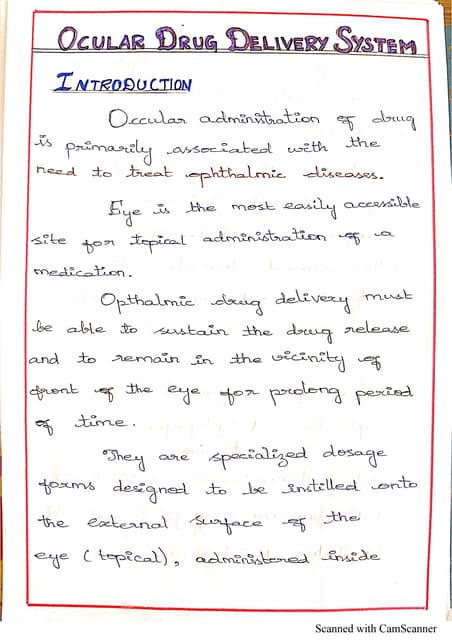 OCULAR DRUG DELIVERY SYSTEM
INTRODUCTION
Occular administration of drug
is primarily associated with the
need to treat ophthalmic diseases.
Eye is the most easily accessible
site for topical administration of a
medication.
Opthalmic drug delivery must
be able to sustain the drug release
and to remain in the vicinity of
front of the eye for prolong period
of time.
They are specialized dosage
forms designed to be instilled onto
the external surface of the
eye (topical), administered inside
Scanned with CamScanner